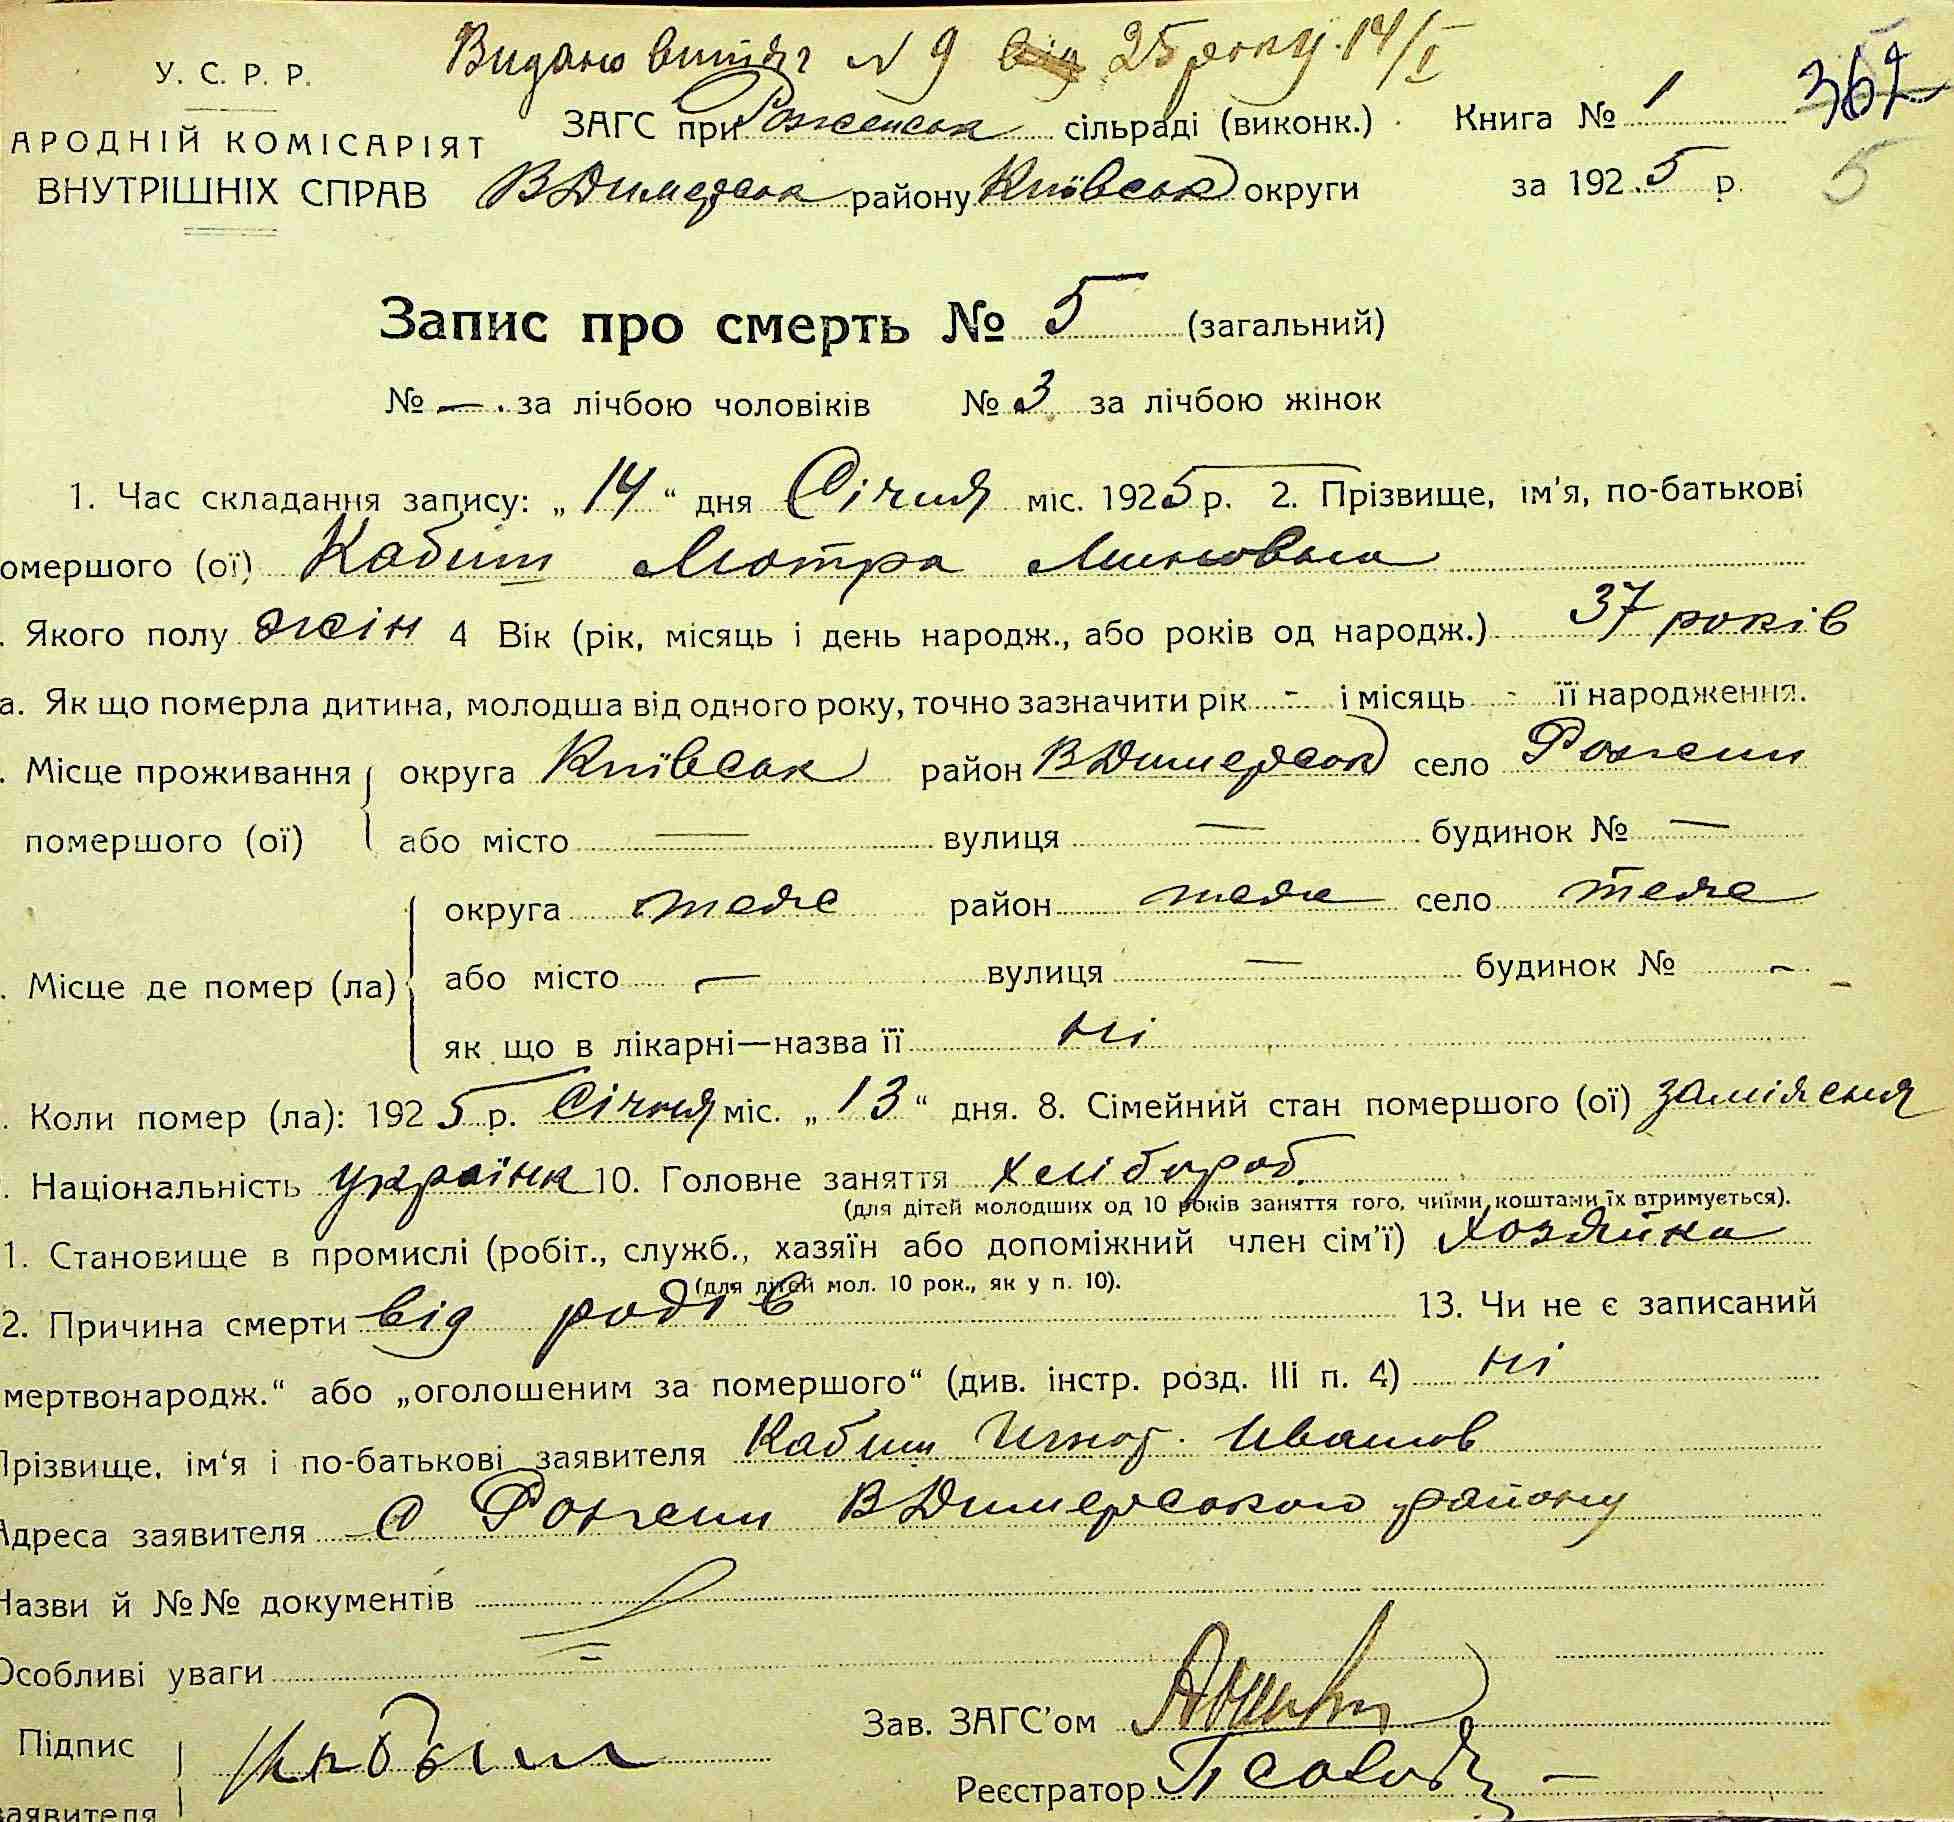 Видано витяг N 9 від 25 року 14/I
У. С. Р. Р.
362
ЗАГС при Роженськ сільраді (виконк.) Книга № 1
АРОДНІЙ КОМІСАРІЯТ
ВНУТРІШНІХ СПРАВ ВДимерськ району Київськ округи за 192 5 р. 5
Запис про смерть № 5 (загальний)
№ — за лічбою чоловіків № 3 за лічбою жінок
1. Час складання запису: „ 14 “ дня Січня міс. 1925 р. 2. Прізвище, ім'я, по-батькові
омершого (ої) Кабиш Мотра Миновна
. Якого полу жін 4 Вік (рік, місяць і день народж., або років од народж.) 37 років
а. Як що померла дитина, молодша від одного року, точно зазначити рік - і місяць - її народження.
. Місце проживання округа Київськ район ВДимерськ село Рожени
помершого (ої) або місто — вулиця — будинок № —
округа теже район теже село теже
. Місце де помер (ла) або місто — вулиця — будинок № -
як що в лікарні—назва її ні
. Коли помер (ла): 192 5 р. Січня міс. „ 13 “ дня. 8. Сімейний стан помершого (ої) заміжня
. Національність українк 10. Головне заняття хлібороб.
(для дітей молодших од 10 років заняття того, чиїми коштами їх втримується).
1. Становище в промислі (робіт., служб., хазяїн або допоміжний член сім'ї) хозяйка
(для дітей мол. 10 рок., як у п. 10).
2. Причина смерти від родів 13. Чи не є записаний
мертвонародж.“ або „оголошеним за помершого“ (див. інстр. розд. III п. 4) ні
Прізвище, ім'я і по-батькові заявителя Кабиш Игнат Иванов
Адреса заявителя с Рожени ВДимерського району
Назви й №№ документів
Особливі уваги
Зав. ЗАГС'ом
Підпис Кабыш
Реєстратор
заявителя